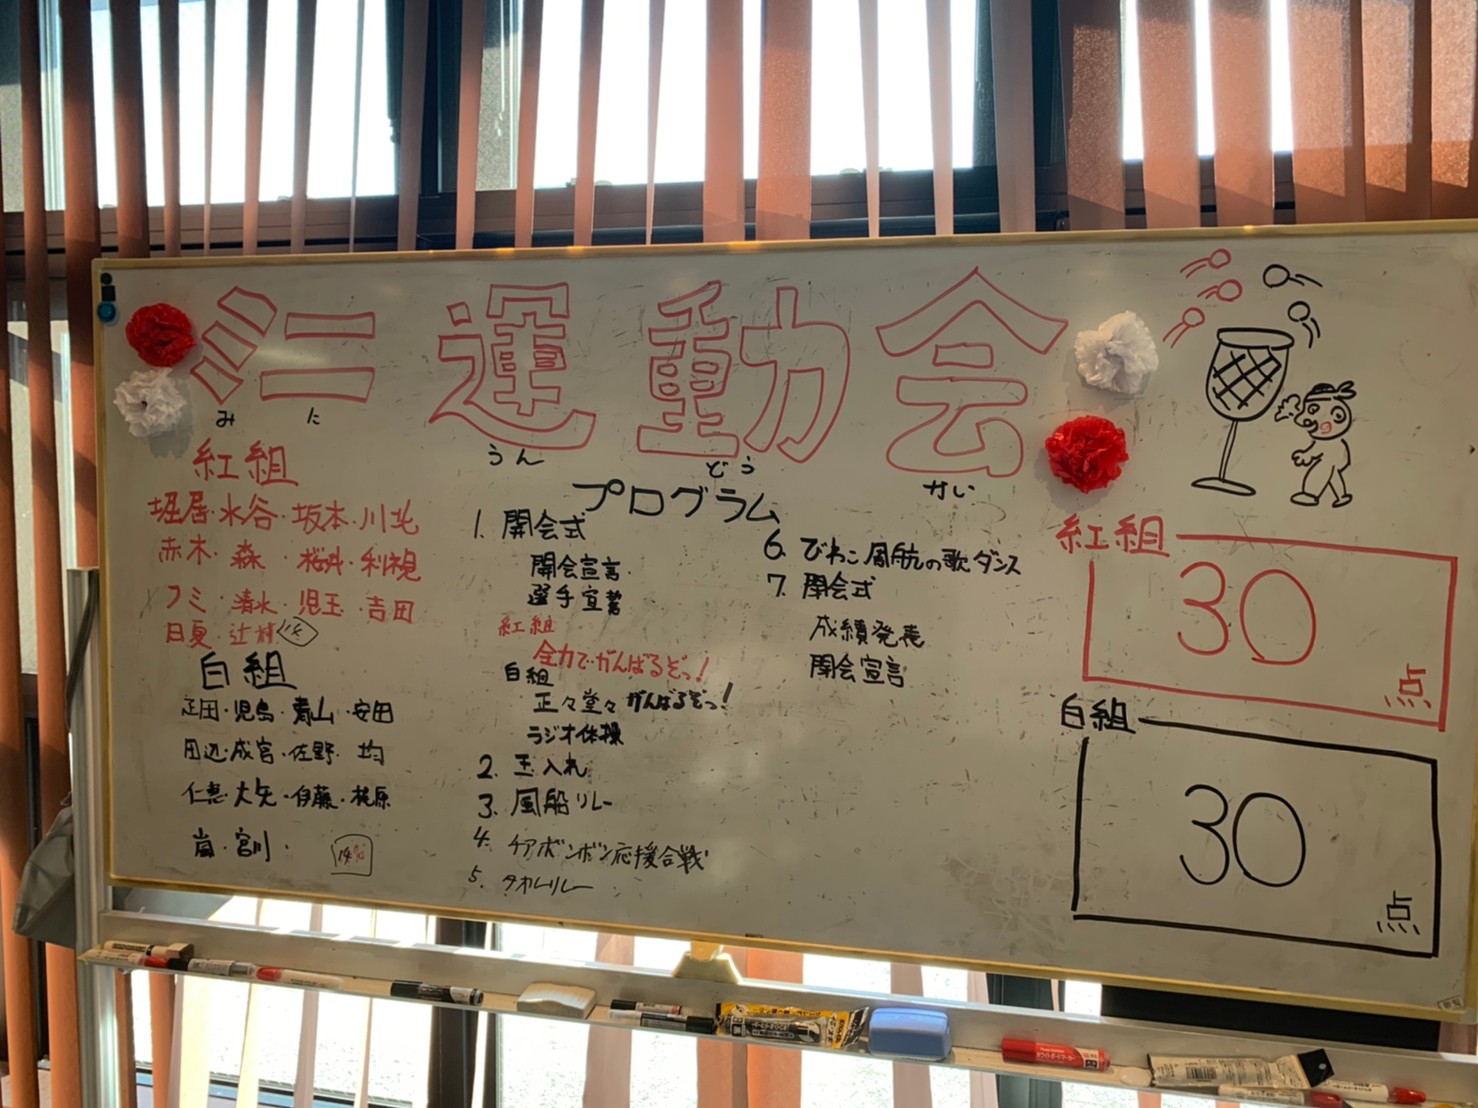 ミニ運動会
みに うん どう かい
紅組
堀居・水谷・坂本・川北
赤木・森・桜井・利視
フミ・清水・児玉・吉田
日夏・辻村
白組
疋田・児島・青山・安田
田辺・成宮・佐野・均
仁恵・大矢・伊藤・梶原
嵐・宮川・
14名
プログラム
1. 開会式
開会宣言
選手宣誓
紅組
全力でがんばるぞっ!
白組
正々堂々がんばるぞっ!
ラジオ体操
2. 玉入れ
3. 風船リレー
4. チアボンボン応援合戦
5. タオルリレー
6. びわこ周航の歌ダンス
7. 閉会式
成績発表
閉会宣言
紅組
30
点
白組
30
点